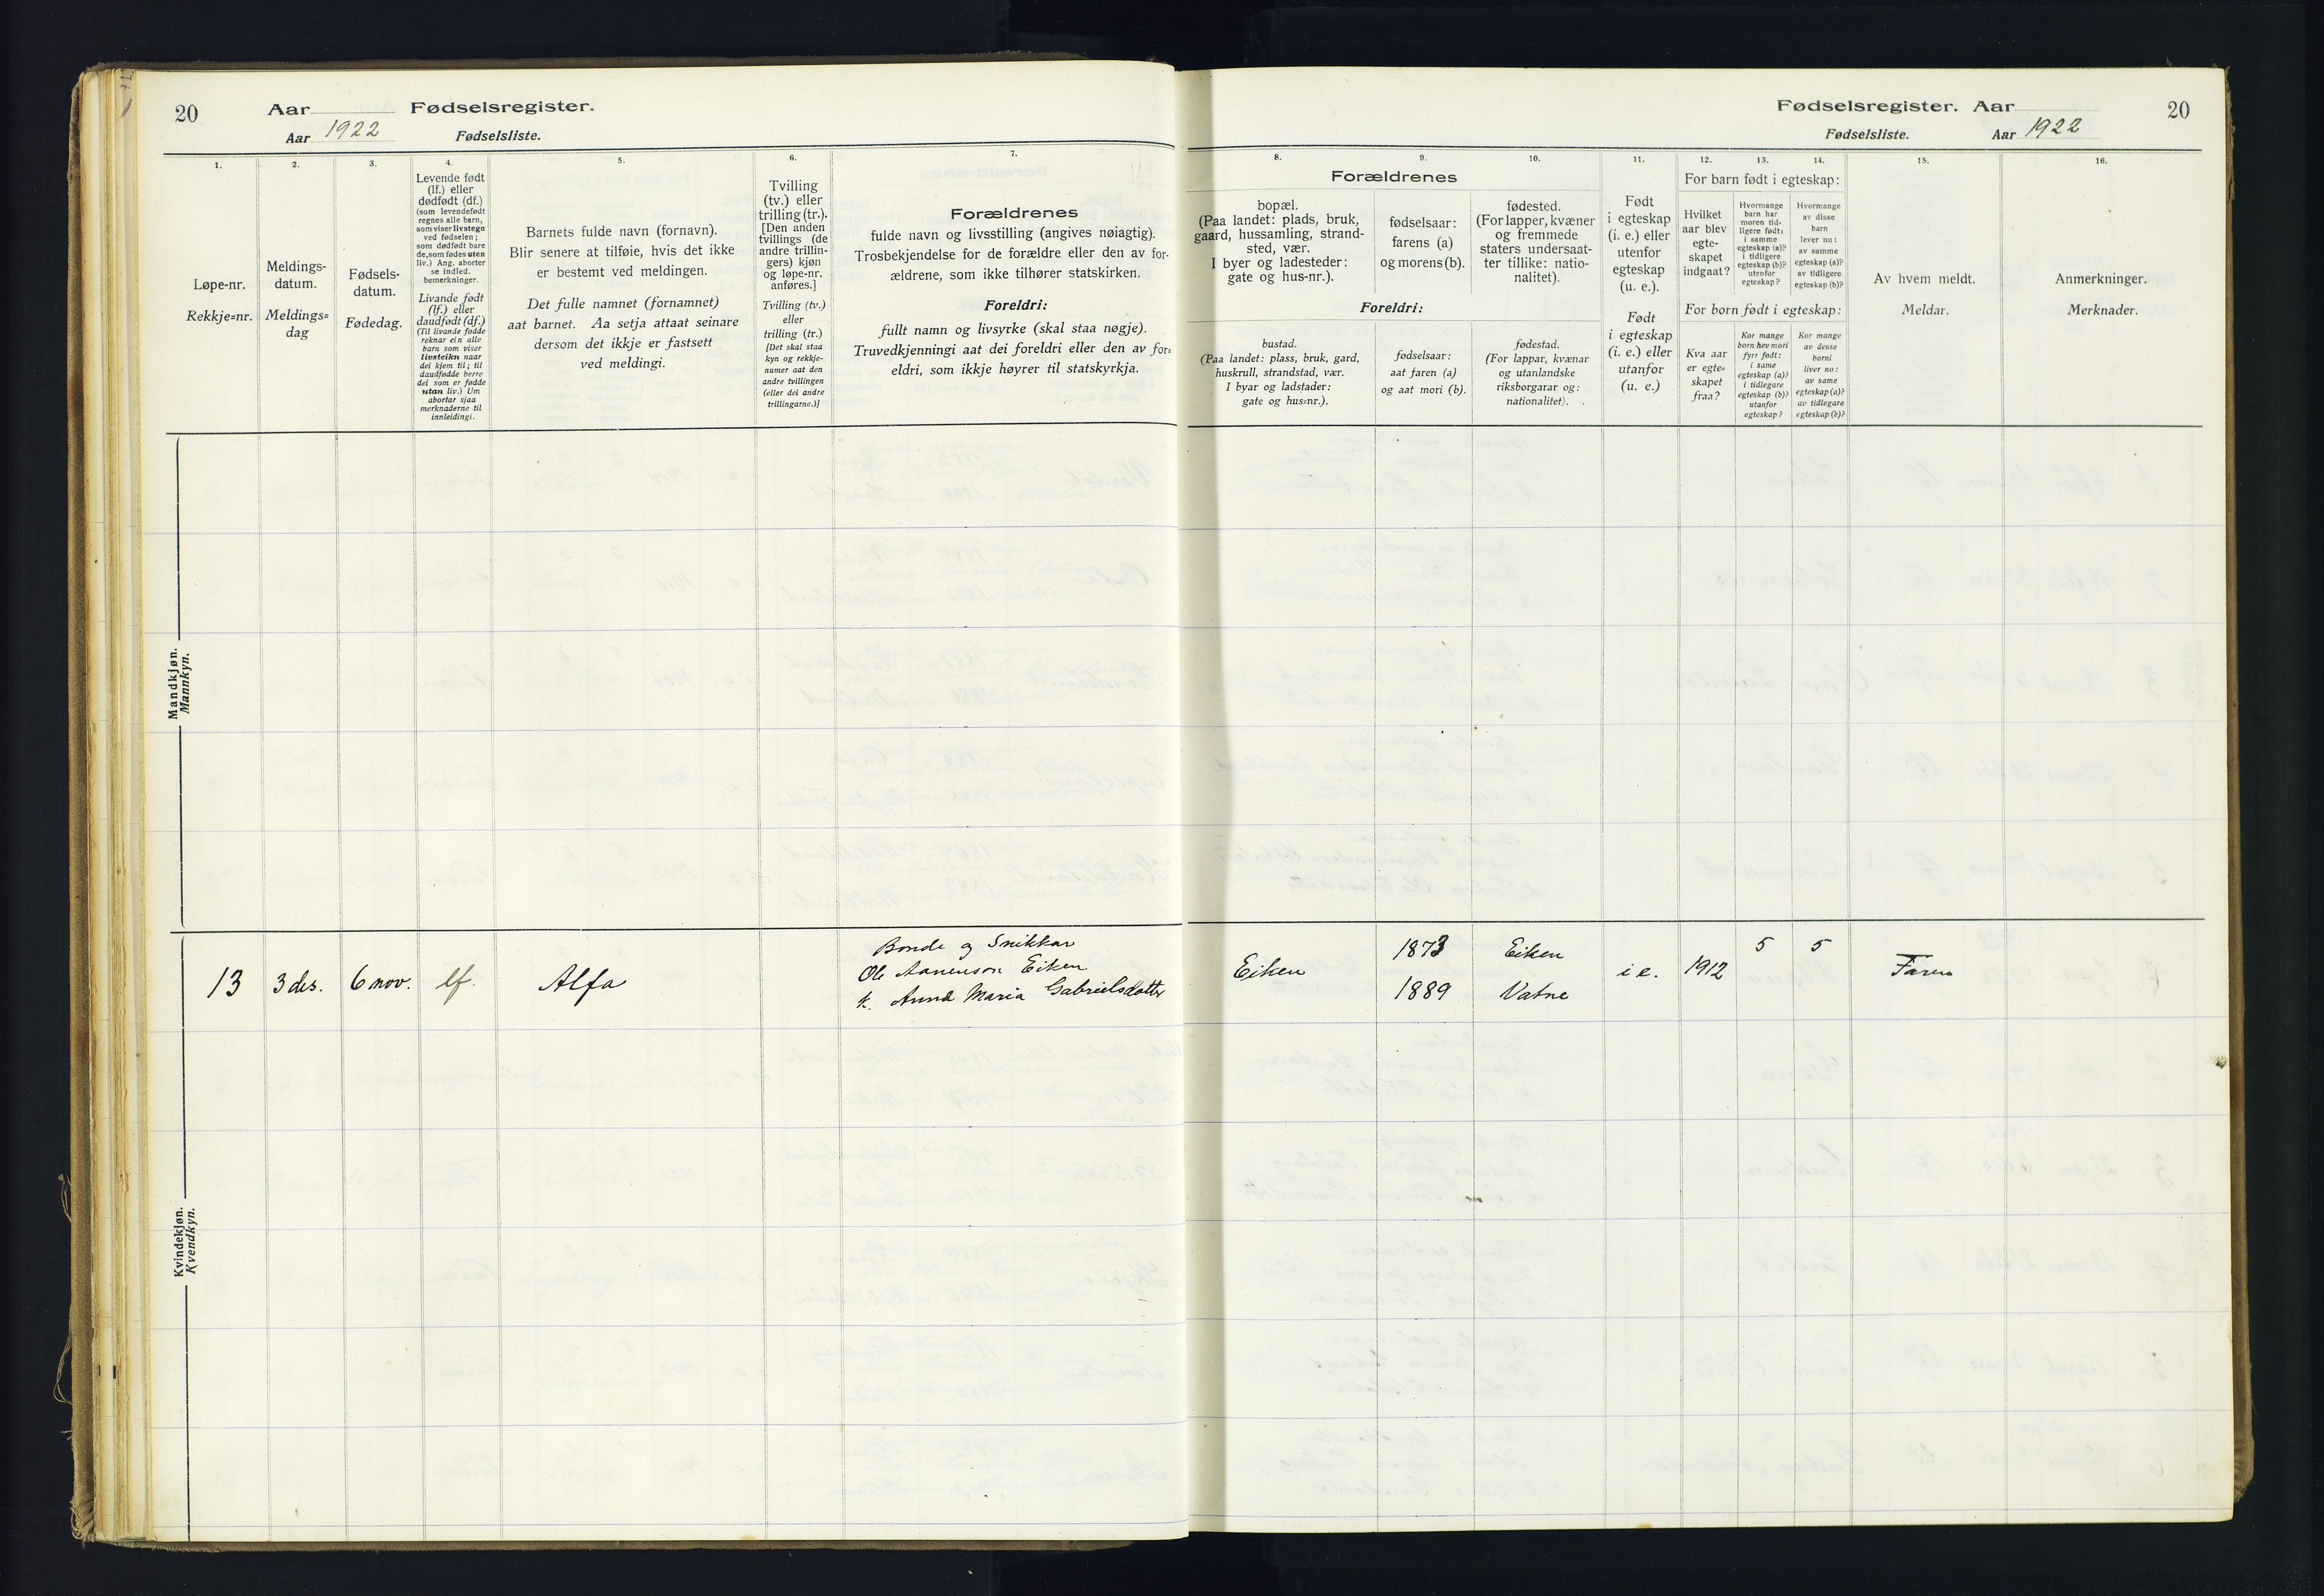 20 Aar Fødselsregister.
Aar 1922 Fødselsliste.
1.
Løpe-nr.
Rekkje-nr.
2.
Meldings-
datum.
Meldings-
dag
3.
Fødsels-
datum.
Fødedag.
4.
Levende født
(lf.) eller
dødfødt (df.)
(som levendefødt
regnes alle barn,
som viser livstegn
ved fødselen;
som dødfødt bare
de, som fødes uten
liv.) Ang. aborter
se indled.
bemerkninger.
Livande født
(lf.) eller
daudfødt (df.)
(Til livande fødde
reknar ein alle
barn som viser
livsteikn naar
dei kjem til; til
daudfødde berre
dei som er fødde
utan liv.) Um
abortar sjaa
merknaderne til
innleidingi.
5.
Barnets fulde navn (fornavn).
Blir senere at tilføie, hvis det ikke
er bestemt ved meldingen.
Det fulle namnet (fornamnet)
aat barnet. Aa setja attaat seinare
dersom det ikkje er fastsett
ved meldingi.
6.
Tvilling
(tv.) eller
trilling (tr.).
[Den anden
tvillings (de
andre trillin-
gers) kjøn
og løpe-nr.
anføres.]
Tvilling (tv.)
eller
trilling (tr.)
[Det skal staa
kyn og rekkje-
numer aat den
andre tvillingen
(eller dei andre
trillingarne.)]
7.
Forældrenes
fulde navn og livsstilling (angives nøiagtig).
Trosbekjendelse for de forældre eller den av for-
ældrene, som ikke tilhører statskirken.
Foreldri:
fullt namn og livsyrke (skal staa nøgje).
Truvedkjenningi aat dei foreldri eller den av for-
eldri, som ikkje høyrer til statskyrkja.
Mandkjøn.
Mannkyn.
Kvindekjøn.
Kvendkyn.
13 3 des. 6 nov. lf. Alfa
Bonde og Snikkar
Ole Aanenson Eiken
k. Anna Maria Gabrielsdotter
Fødselsregister. Aar 20
Fødselsliste. Aar 1922
Forældrenes
8.
bopæl.
(Paa landet: plads, bruk,
gaard, hussamling, strand-
sted, vær.
I byer og ladesteder:
gate og hus-nr.).
9.
fødselsaar:
farens (a)
og morens (b).
10.
fødested.
(For lapper, kvæner
og fremmede
staters undersaat-
ter tillike: natio-
nalitet).
Foreldri:
bustad.
(Paa landet: plass, bruk, gard,
huskrull, strandstad, vær.
I byar og ladstader:
gate og hus-nr.).
fødselsaar:
aat faren (a)
og aat mori (b).
fødestad.
(For lappar, kvænar
og utanlandske
riksborgarar og:
nationalitet).
11.
Født
i egteskap
(i. e.) eller
utenfor
egteskap
(u. e.).
Født
i egteskap
(i. e.) eller
utanfor
(u. e.)
For barn født i egteskap:
12.
Hvilket
aar blev
egte-
skapet
indgaat?
13.
Hvormange
barn har
moren tid-
ligere født:
i samme
egteskap (a)?
i tidligere
egteskap (b)?
utenfor
egteskap?
14.
Hvormange
av disse
barn
lever nu:
av samme
egteskap (a)?
av tidligere
egteskap (b)?
For born født i egteskap:
Kva aar
er egte-
skapet
fraa?
Kor mange
born hev mori
fyrr født:
i same
egteskap (a)?
i tidlegare
egteskap (b)?
utanfor
egteskap?
Kor mange
av desse
borni
liver no:
av same
egteskap (a)?
av tidlegare
egteskap (b)?
15.
Av hvem meldt.
Meldar.
16.
Anmerkninger.
Merknader.
Eiken
1873 Eiken
1889 Vatne
i e. 1912 5 5 Faren